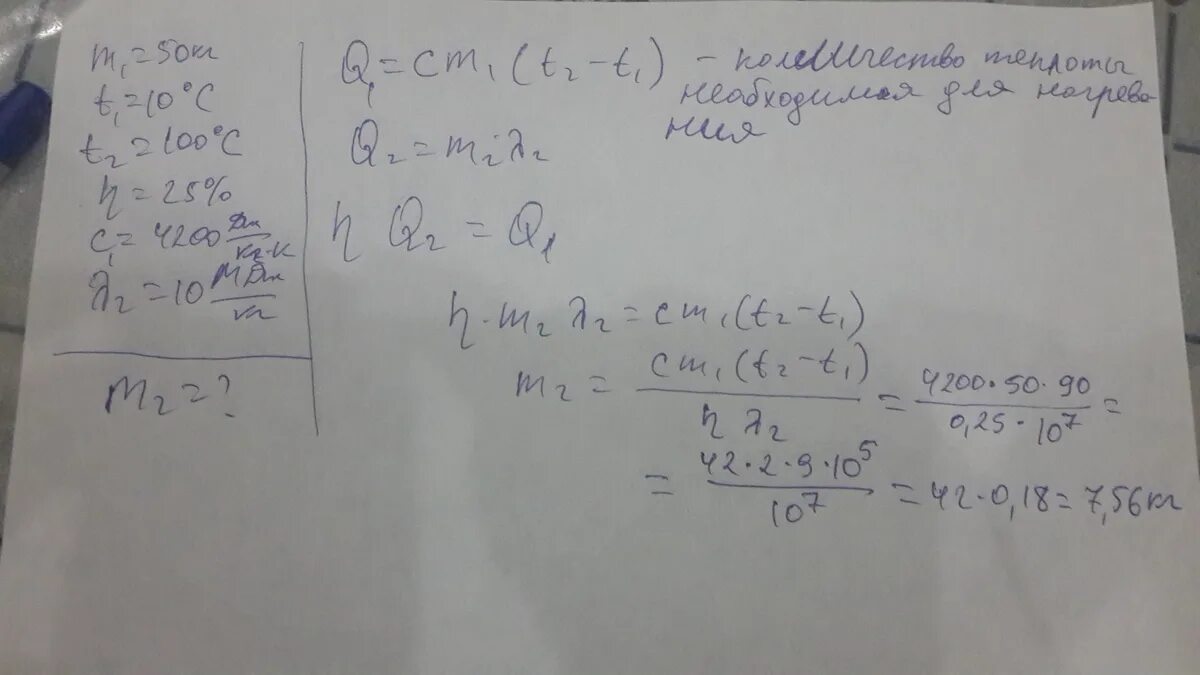 m₁ = 50кг
t₁ = 10°C
t₂ = 100°C
η = 25%
c₁ = 4200 Дж/кг·К
λ₂ = 10 МДж/кг
m₂ = ?
Q₁ = cm₁(t₂ - t₁) - количество теплоты
необходимая для нагрева-
ния
Q₂ = m₂·λ₂
η Q₂ = Q₁
η·m₂ λ₂ = cm₁(t₂ - t₁)
m₂ = cm₁(t₂ - t₁)/η λ₂ = 4200·50·90/0,25·10⁷ =
= 42·2·9·10⁵/10⁷ = 42·0,18 = 7,56кг